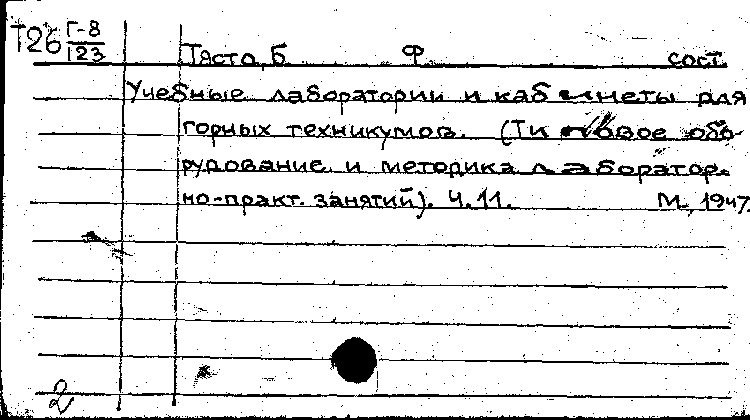 Т26 Г-8
123
Тясто, Б Ф сост.
Учебные лаборатории и кабинеты для
горных техникумов. (Типовое обо-
рудование и методика лаборатор-
но-практ. занятий). Ч.11. М., 1947.
2